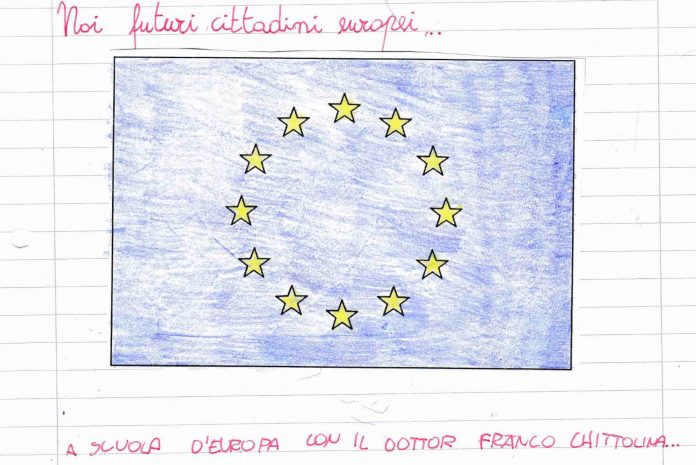 Noi futuri cittadini europei...
A SCUOLA D'EUROPA CON IL DOTTOR FRANCO CHITTOLINA...